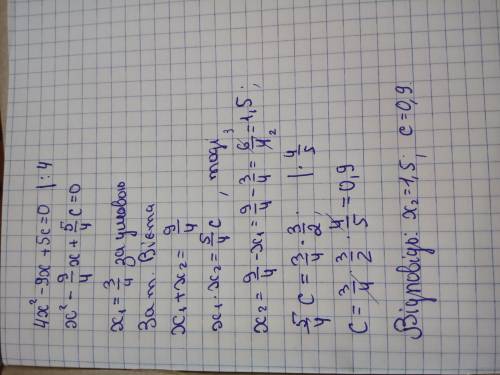 4x² - 9x + 5c = 0 | : 4
x² - 9/4 x + 5/4 c = 0
x₁ = 3/4 за умовою
За т. Вієта
x₁ + x₂ = 9/4
x₁ · x₂ = 5/4 c , тоді
x₂ = 9/4 - x₁ = 9/4 - 3/4 = 6³/4₂ = 1,5 ;
5/4 c = 3/4 · 3/2 ; | · 4/5
c = 3/4 · 3/2 · 4/5 = 0,9
Відповідь: x₂ = 1,5 ; c = 0,9.